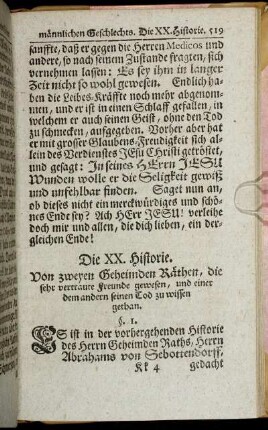 männlichen Geschlechts. Die XX. Historie. 519
sanffte, daß er gegen die Herren Medicos und
andere, so nach seinem Zustande fragten, sich
vernehmen lassen: Es sey ihm in langer
Zeit nicht so wohl gewesen. Endlich ha-
ben die Leibes-Kräffte noch mehr abgenom-
men, und er ist in einen Schlaff gefallen, in
welchem er auch seinen Geist, ohne den Tod
zu schmecken, aufgegeben. Vorher aber hat
er mit grosser Glaubens-Freudigkeit sich al-
lein des Verdienstes JEsu CHristi getröstet,
und gesagt: In seines HErrn JESU
Wunden wolle er die Seligkeit gewiß
und unfehlbar finden. Saget nun an,
ob dieses nicht ein merckwürdiges und schö-
nes Ende sey? Ach HErr JESU! verleihe
doch mir und allen, die dich lieben, ein der-
gleichen Ende!
Die XX. Historie.
Von zweyen Geheimden Räthen, die
sehr vertraute Freunde gewesen, und einer
dem andern seinen Tod zu wissen
gethan.
§. 1.
ES ist in der vorhergehenden Historie
des Herrn Geheimden Raths, Herrn
Abrahams von Sebottendorff,
Kk 4 gedacht